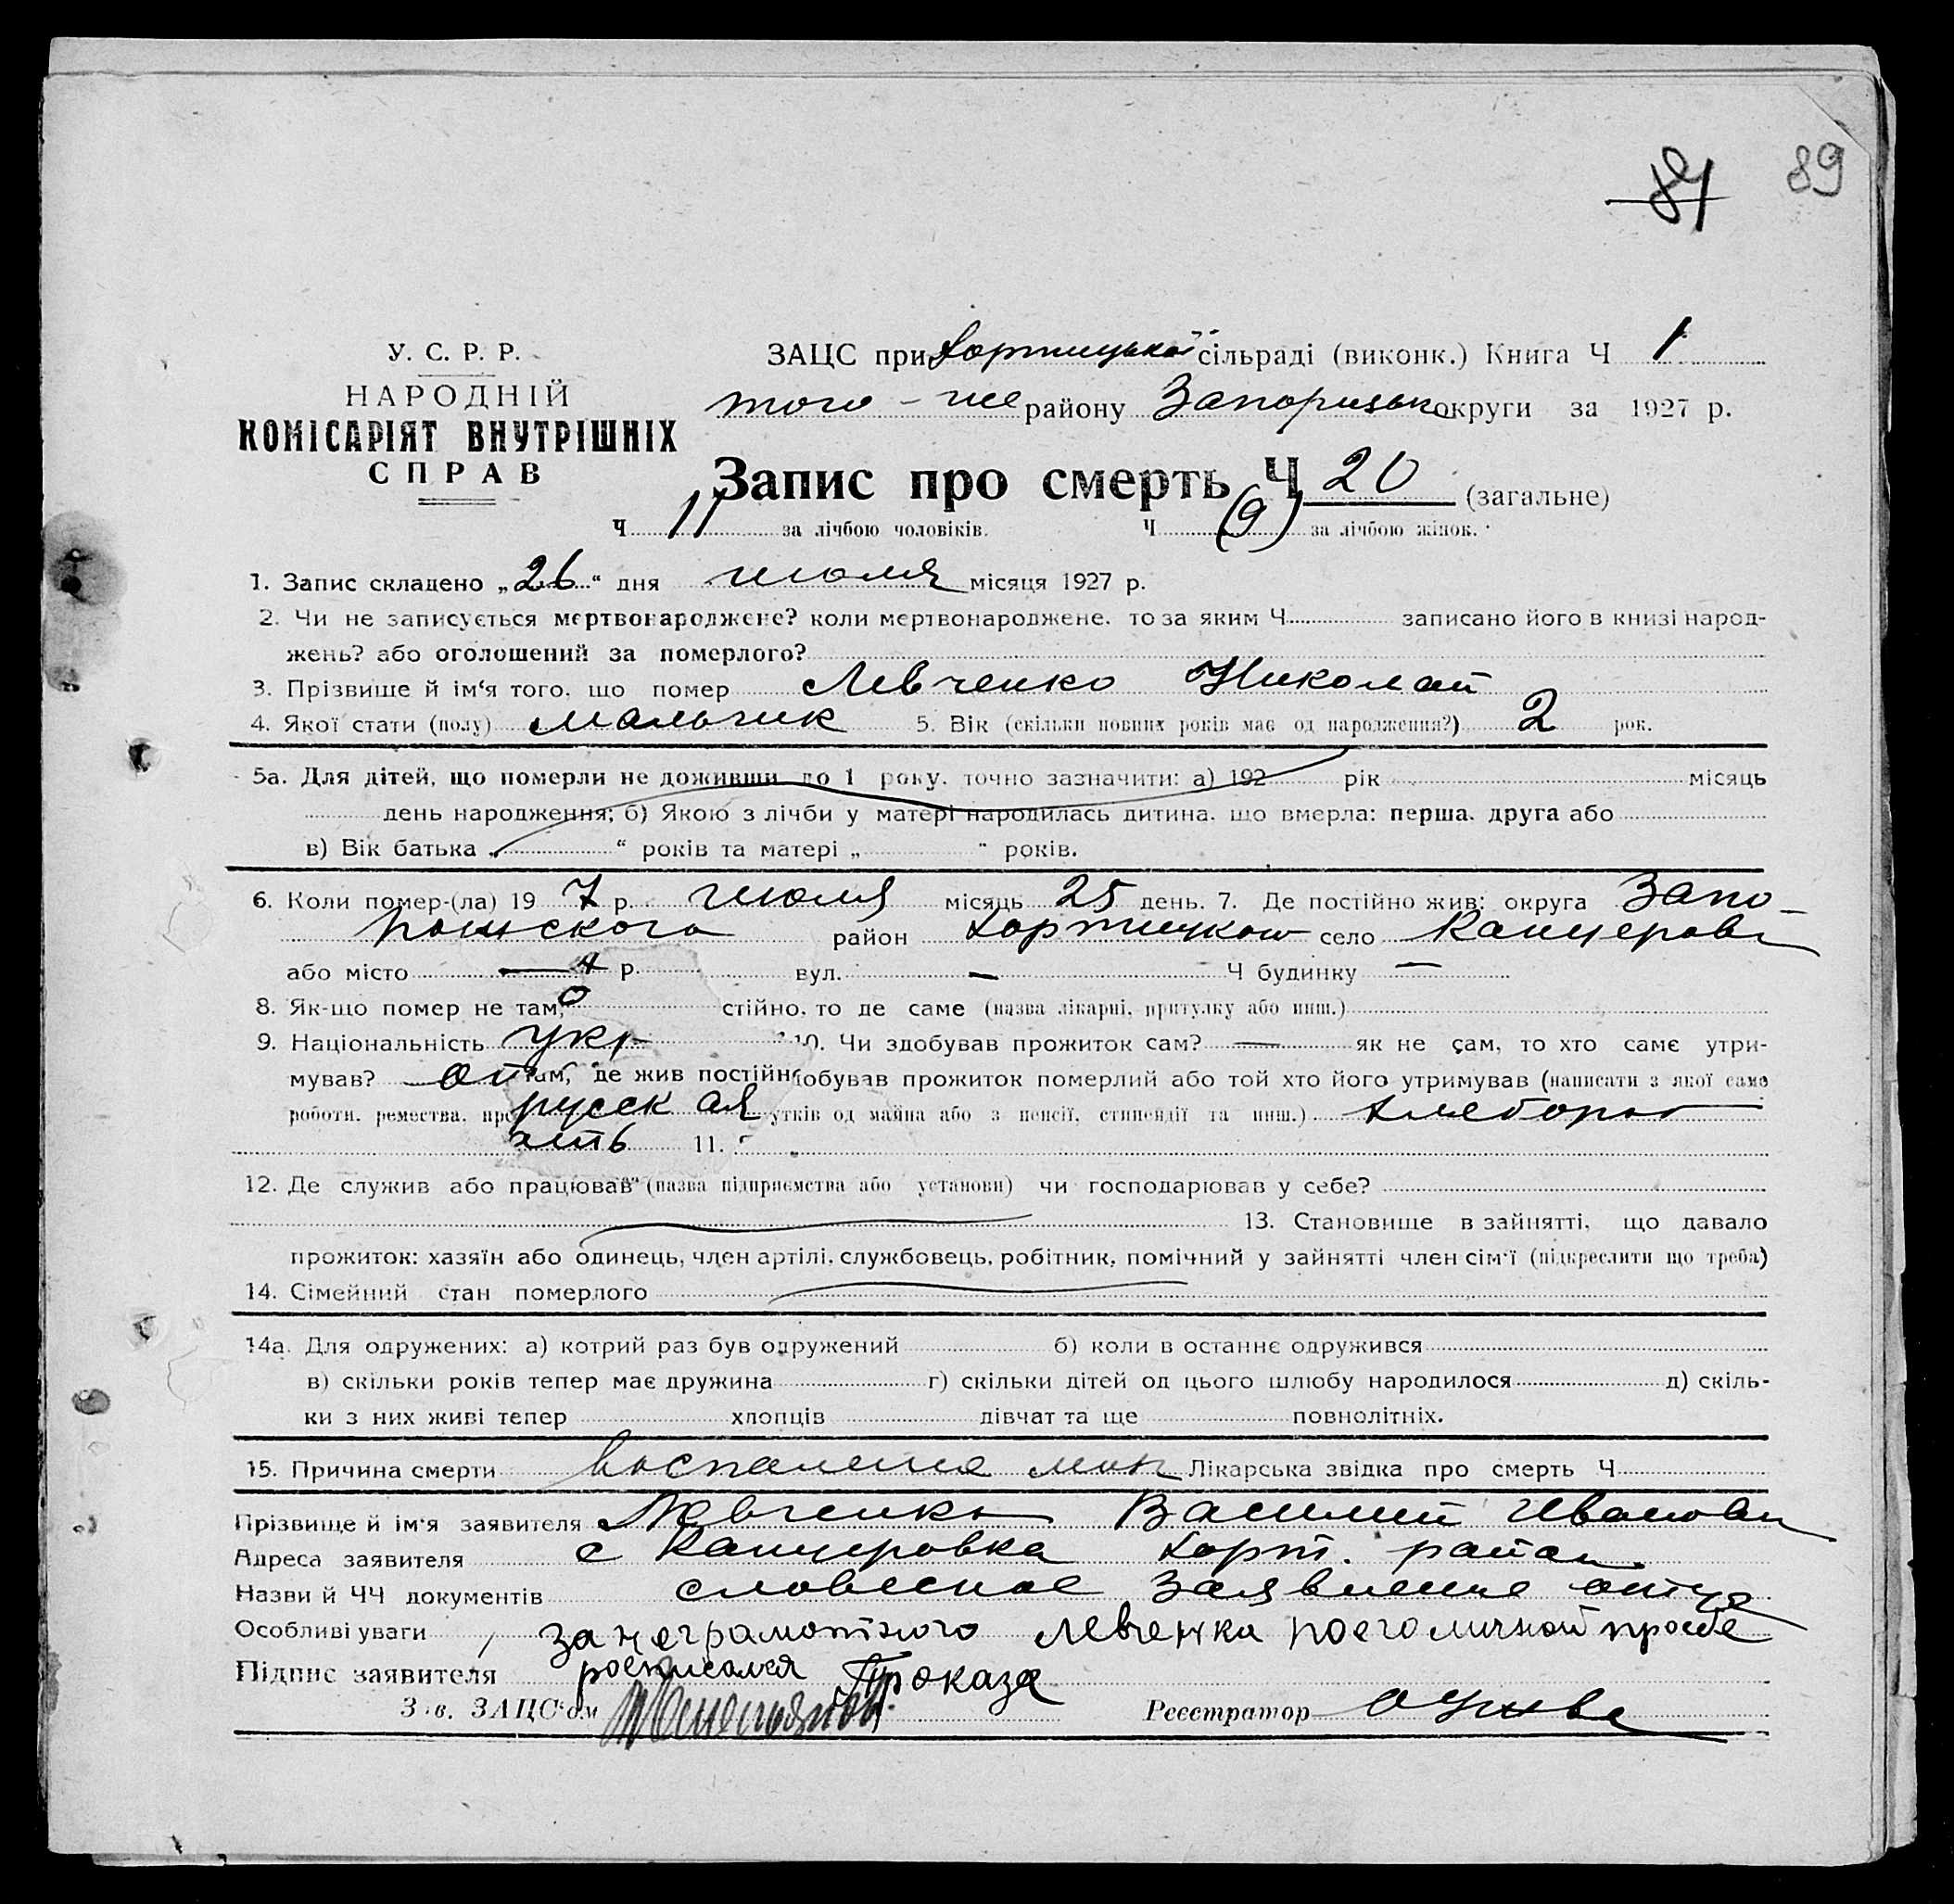 84 89
У. С. Р. Р.
НАРОДНІЙ
КОМІСАРІЯТ ВНУТРІШНІХ
СПРАВ
ЗАЦС при Хортицької сільраді (виконк.) Книга Ч 1
того - же району Запоризько округи за 1927 р.
Запис про смерть Ч 20 (загальне)
Ч 11 за лічбою чоловіків. Ч (9) за лічбою жінок.
1. Запис складено „26“ дня июля місяця 1927 р.
2. Чи не записується мертвонароджене? коли мертвонароджене, то за яким Ч записано його в книзі народ-
жень? або оголошений за померлого?
3. Прізвище й ім‘я того, що помер Левченко Николай
4. Якої стати (полу) мальчик 5. Вік (скільки повних років має од народження?) 2 рок.
5а. Для дітей, що померли не доживши до 1 року, точно зазначити: а) 192 рік місяць
день народження; б) Якою з лічби у матері народилась дитина, що вмерла: перша, друга або
в) Вік батька „ “ років та матері „ “ років.
6. Коли помер-(ла) 19 7 р. июля місяць 25 день. 7. Де постійно жив: округа Запо-
рожского район Хортицкой село Канцеровк
або місто — р. вул. — Ч будинку —
8. Як-що помер не там, стійно, то де саме (назва лікарні, притулку або инш.)
9. Національність укр 10. Чи здобував прожиток сам? — як не сам, то хто саме утри-
мував? от там, де жив постійно добував прожиток померлий або той хто його утримував (написати з якої саме
роботи, ремества, пр русская утків од майна або з пенсії, стипендії та инш.) хлебороб
11.
12. Де служив або працював (назва підприємства або установи) чи господарював у себе?
13. Становище в зайнятті, що давало
прожиток: хазяїн або одинець, член артілі, службовець, робітник, помічний у зайнятті член сім‘ї (підкреслити що треба)
14. Сімейний стан померлого
14а. Для одружених: а) котрий раз був одружений б) коли в останнє одружився
в) скільки років тепер має дружина г) скільки дітей од цього шлюбу народилося д) скіль-
ки з них живі тепер хлопців дівчат та ще повнолітніх.
15. Причина смерти воспаление Лікарська звідка про смерть Ч
Прізвище й ім‘я заявителя Левченко Василий Иванович
Адреса заявителя с Канцеровка Хорт. район
Назви й ЧЧ документів словесное заявление отца
Особливі уваги за неграмотного Левченка по его личной просбе
Підпис заявителя росписался Проказа
Зав. ЗАЦС‘ом
Реєстратор